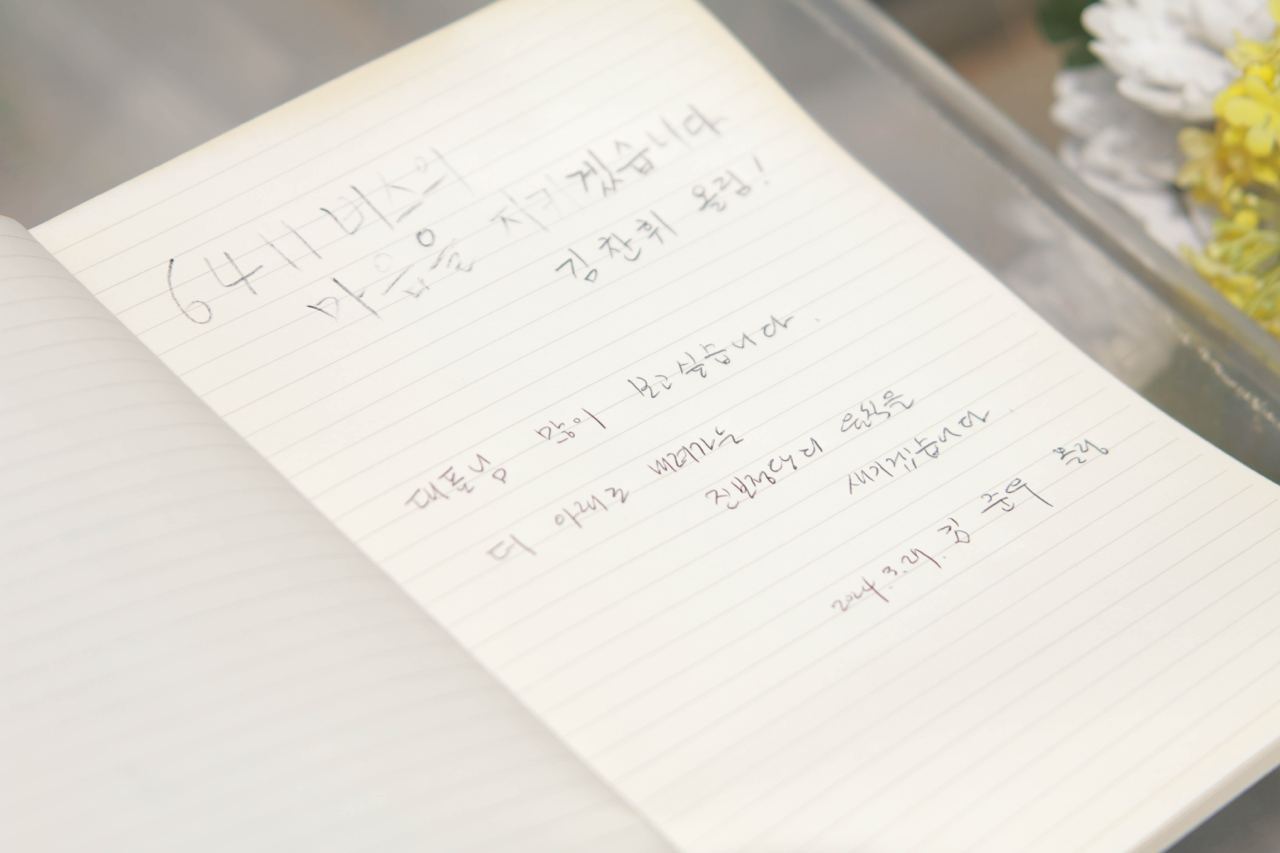 6411 버스의
마음을 지키겠습니다
김찬휘 올림!
대표님 많이 보고싶습니다.
더 아래로 내려가는
진보정당의 원칙을
새기겠습니다.
2024.3.29. 김준우 올림